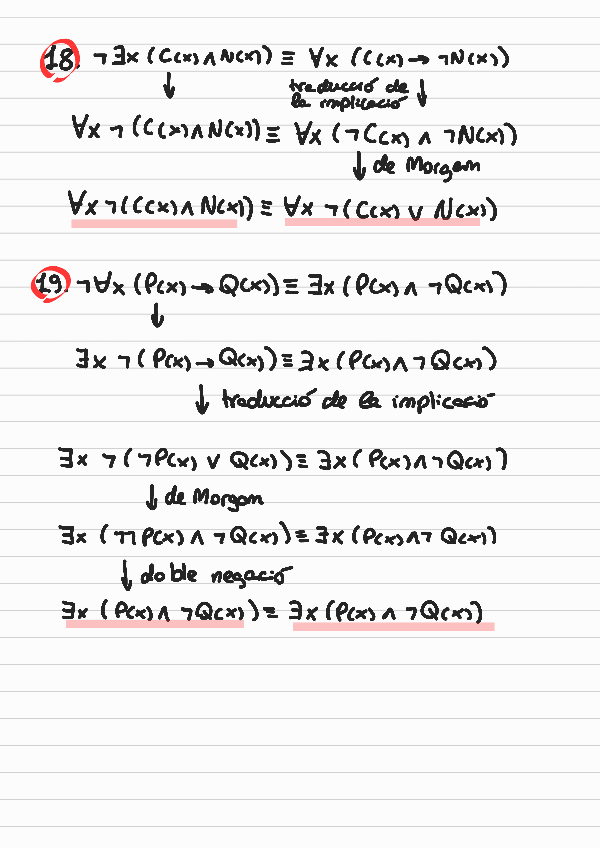 18. ¬∃x (C(x) ∧ N(x)) ≡ ∀x (C(x) → ¬N(x))
↓ traducció de la implicació ↓
∀x ¬(C(x) ∧ N(x)) ≡ ∀x (¬C(x) ∧ ¬N(x))
↓ de Morgam
∀x ¬(C(x) ∧ N(x)) ≡ ∀x ¬(C(x) ∨ N(x))
19. ¬∀x (P(x) → Q(x)) ≡ ∃x (P(x) ∧ ¬Q(x))
↓
∃x ¬(P(x) → Q(x)) ≡ ∃x (P(x) ∧ ¬Q(x))
↓ traducció de la implicació
∃x ¬(¬P(x) ∨ Q(x)) ≡ ∃x (P(x) ∧ ¬Q(x))
↓ de Morgam
∃x (¬¬P(x) ∧ ¬Q(x)) ≡ ∃x (P(x) ∧ ¬Q(x))
↓ doble negació
∃x (P(x) ∧ ¬Q(x)) ≡ ∃x (P(x) ∧ ¬Q(x))